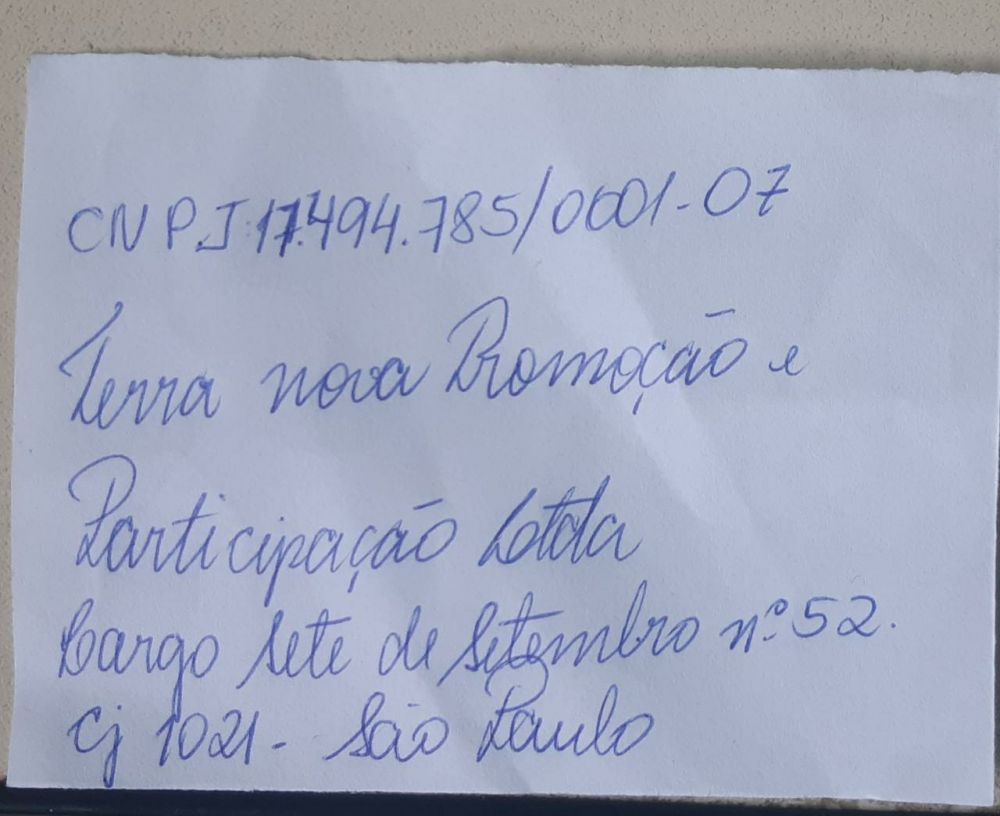 CNPJ 17.494.785/0001-07
Terra nova Promoção e
Participação Ltda
Largo Sete de Setembro nº 52.
Cj 1021 - São Paulo